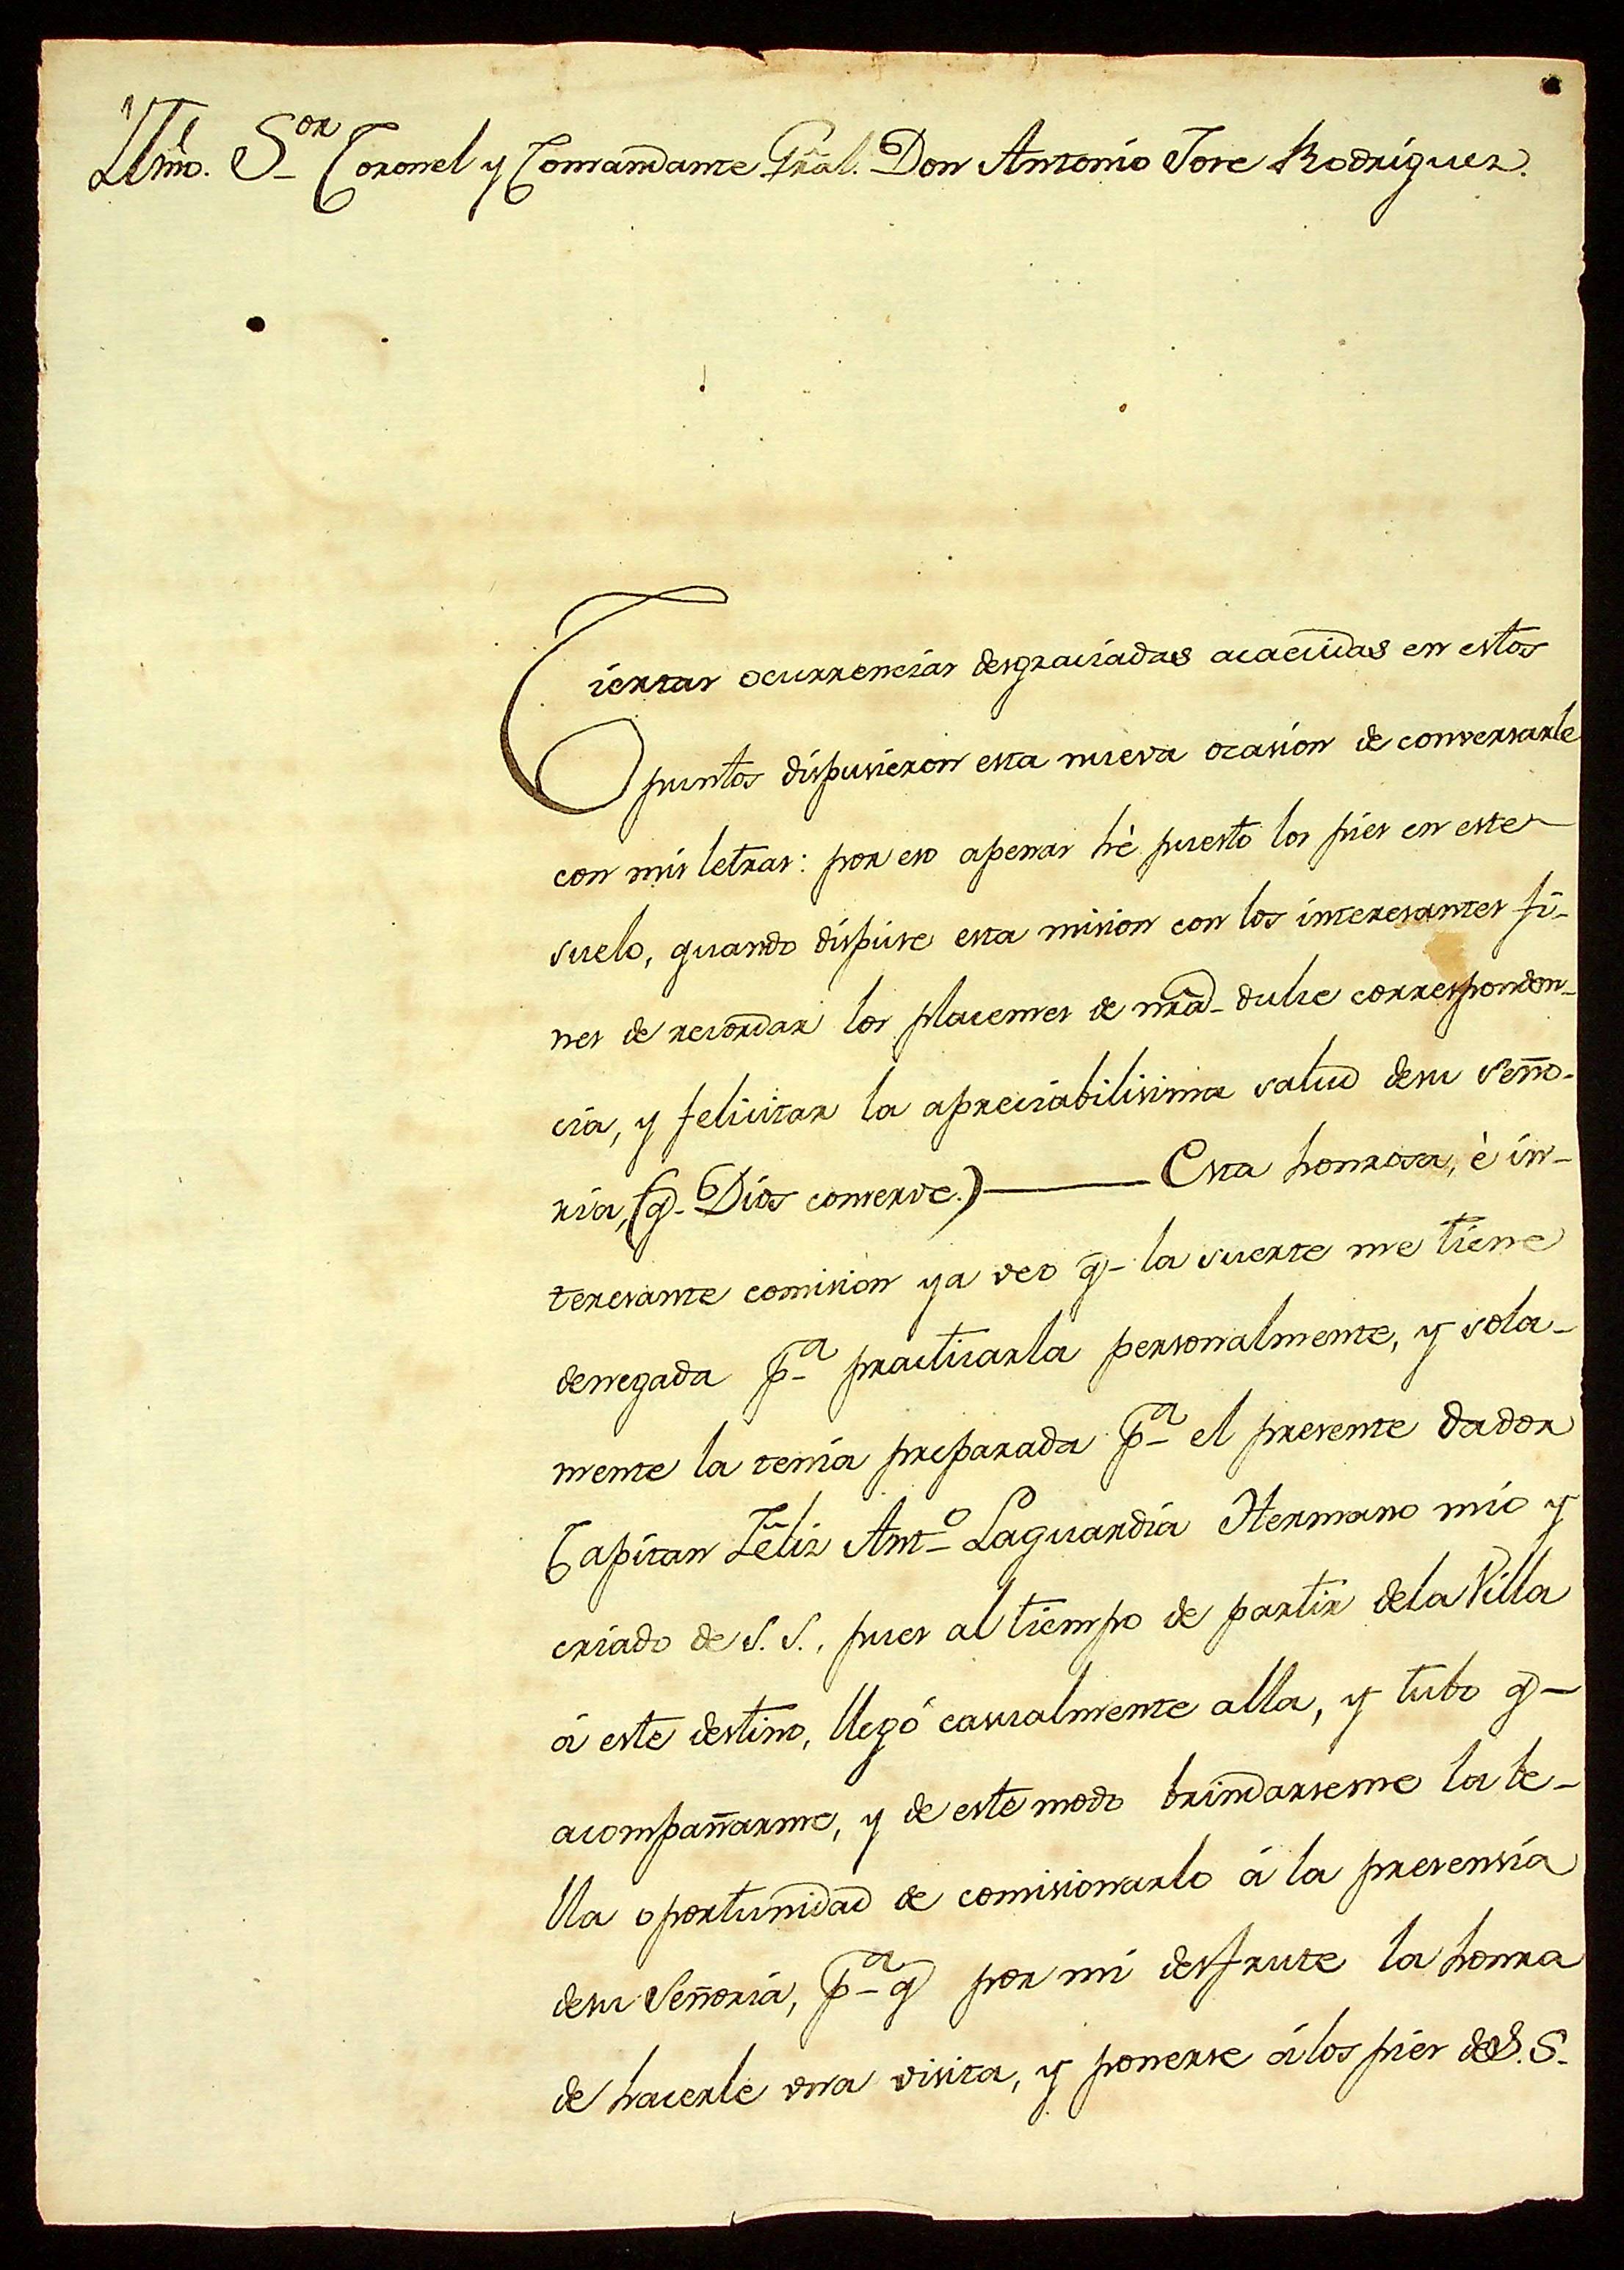 Yllmô. S.or Coronel y Comandante Grãl. Don Antonio Jose Rodriguez.
Ciertas ocurrencias desgraciadas acaecidas en estos
puntos dispusieron esta nueva ocasion de conversarle
con mis letras: por eso apenas hè puesto los pies en este
suelo, quando dispuse esta mision con los interesantes fi-
nes de recordar los placeres de nrã dulce correspondon-
cia, y felicitar la apreciabilisima salud desu Seño-
ria, (q̃ Dios conserve.) — Esta honrosa, è in-
teresante comision ya veo q̃ la suerte me tiene
denegada p.a practicarla personalmente, y sola-
mente la tenía preparada p.a el presente dador
Capitan Félix Ant.o Laguardia Hermano mio y
criado de S. S., pues al tiempo de partir dela Villa
á este destino, llegó casualmente alla, y tubo q̃
acompañarme, y de este modo brindarseme la be-
lla oportunidad de comisionarlo á la presensia
desu Señoria, p.a q̃ por mi desfrute la honra
de hacerle una visita, y ponerse á los pies de S. S.